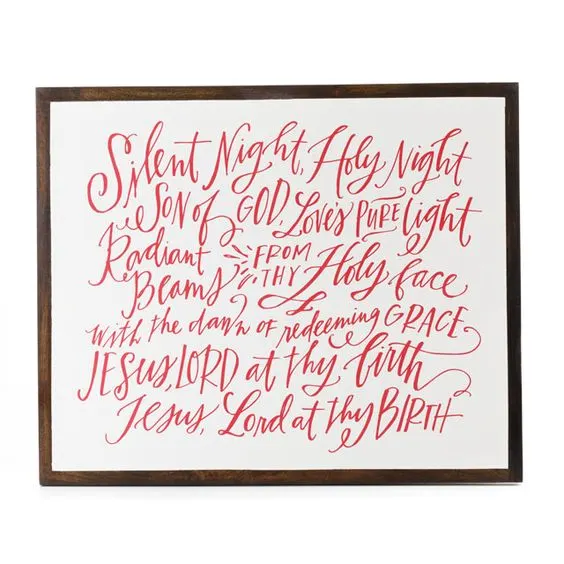 Silent Night, Holy Night
SON of GOD, Love's PURE light
Radiant FROM Holy face
Beams THY
with the dawn of redeeming GRACE,
JESUS, LORD at thy birth
Jesus, Lord at thy BIRTH